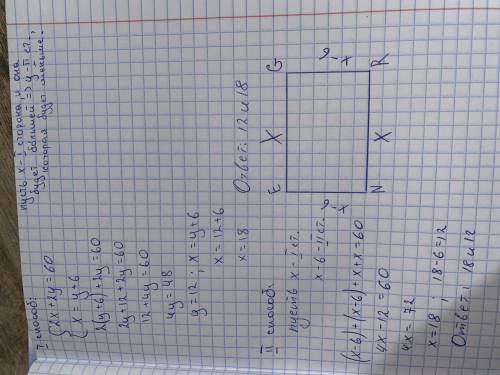 I способ:
пусть x – I сторона, и она
будет большей => y – II ст.,
которая будет меньше.
{2x + 2y = 60
{x = y + 6
2(y+6) + 2y = 60
2y + 12 + 2y = 60
12 + 4y = 60
4y = 48
y = 12 ; x = y + 6
x = 12 + 6
x = 18
Ответ: 12 и 18
II способ:
пусть x – I ст.
x - 6 – II ст.
(x-6) + (x-6) + x + x = 60
4x - 12 = 60
4x = 72
x = 18 ; 18 - 6 = 12
Ответ: 18 и 12
E
X
G
x-6
x-6
N
X
R